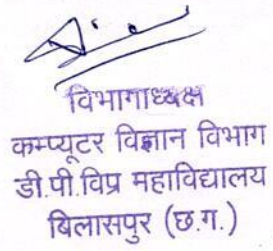 विभागाध्यक्ष
कम्प्यूटर विज्ञान विभाग
डी.पी.विप्र महाविद्यालय
बिलासपुर (छ.ग.)